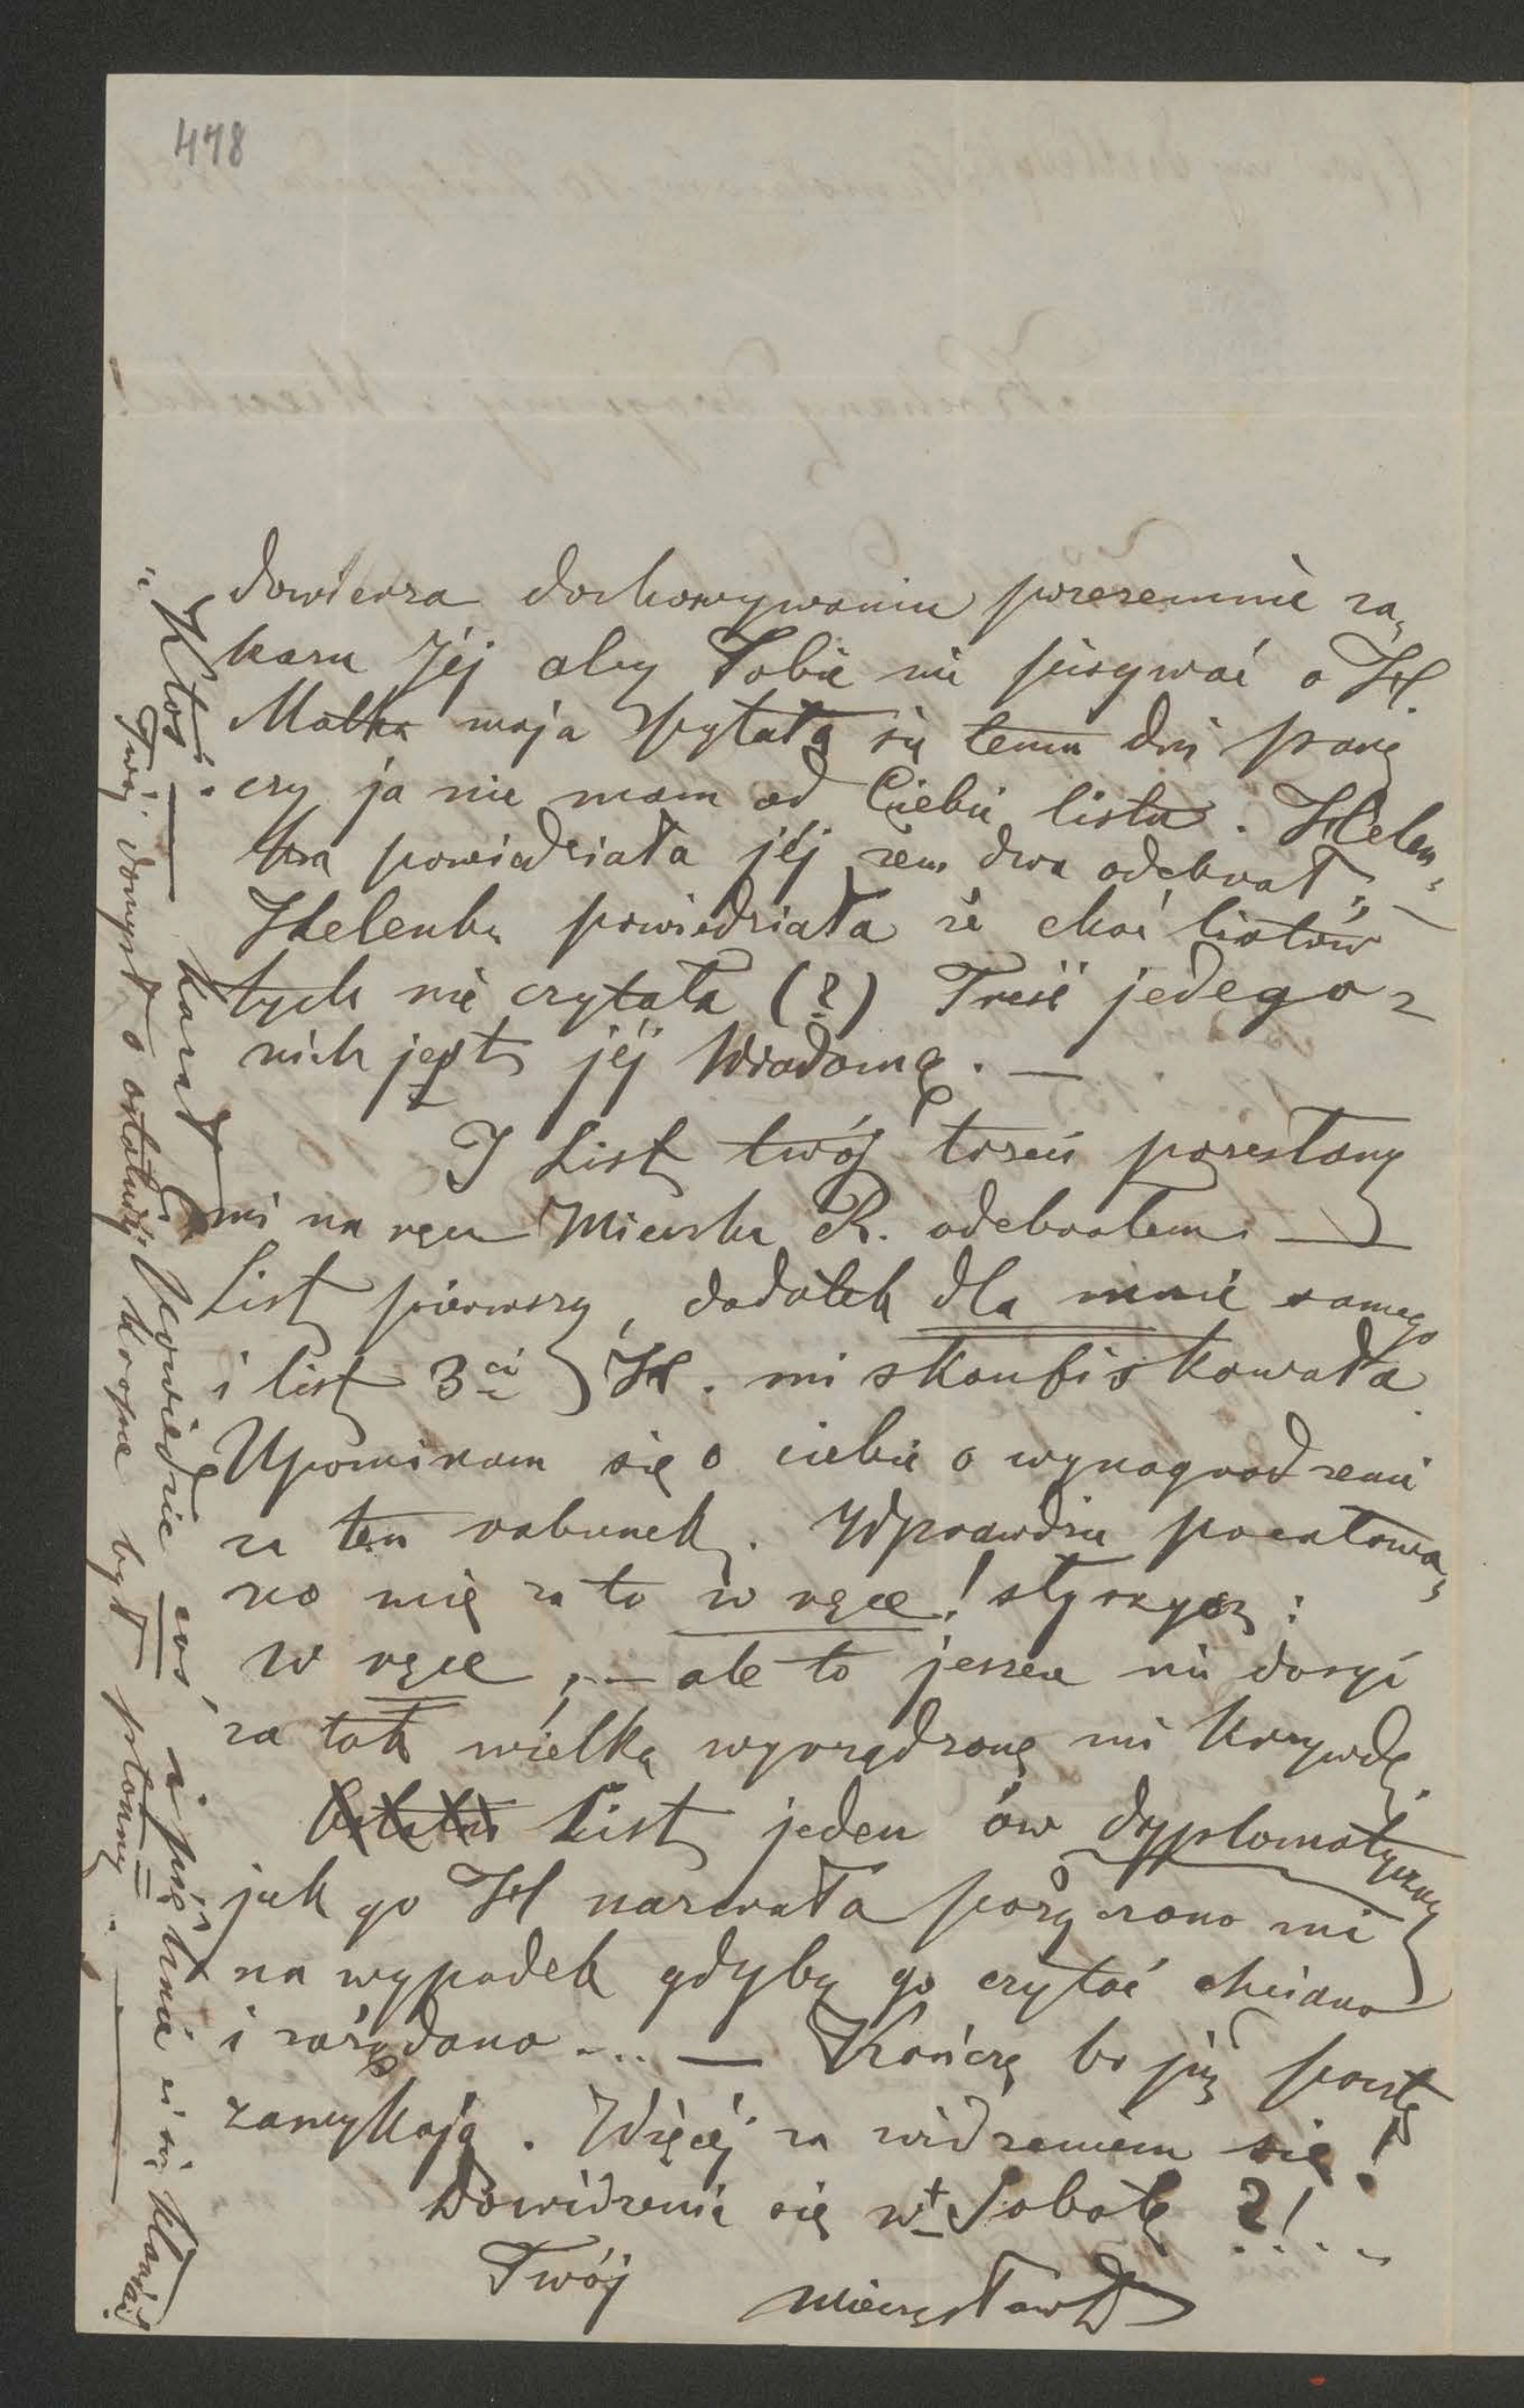 478
dowierza dochowywaniu przezemnie za,
kazu Jéj aby Tobie nie pisywać o H.
Matka moja pytała się temu dni parę
czy ja nie mam od Ciebie listu. Helen,
ka powiedziała jéj żem dwa odebrał;
Helenka powiedziała że choć listów
tych nie czytała (?) Treść jedego z
nich jest jéj Wiadomą. —
I List twój trzeci przesłany
mi na ręce Miecska R. odebrałem. —
List pierwszy, dodatek dla mnie samego
i list 3ci H. mi skonfiskowała.
Upominam się o ciebie o wynagrodzenie
za ten rabunek. Wprawdzie pocałowa,
no mię za to w rękę! słyszysz:
w rękę, — ale to jeszcze nie dosyć
za tak wielką wyrządzoną mi krzywdę.
List jeden ów dyplomatyczny
jak go H nazwała pożyczono mi
na wypadek gdyby go czytać chciano
i zażądano ... — Kończę bo już pocztę
zamykają. Więcéj za widzeniem się!
Dowidzenia się w Sobotę ?!....
Twój Mieczysław
"Ktoś. — kazał Ci powiedzieć coś, i pięknie ci się kłaniać.
Twój domysł o ostatniéj kropce był płonny". —